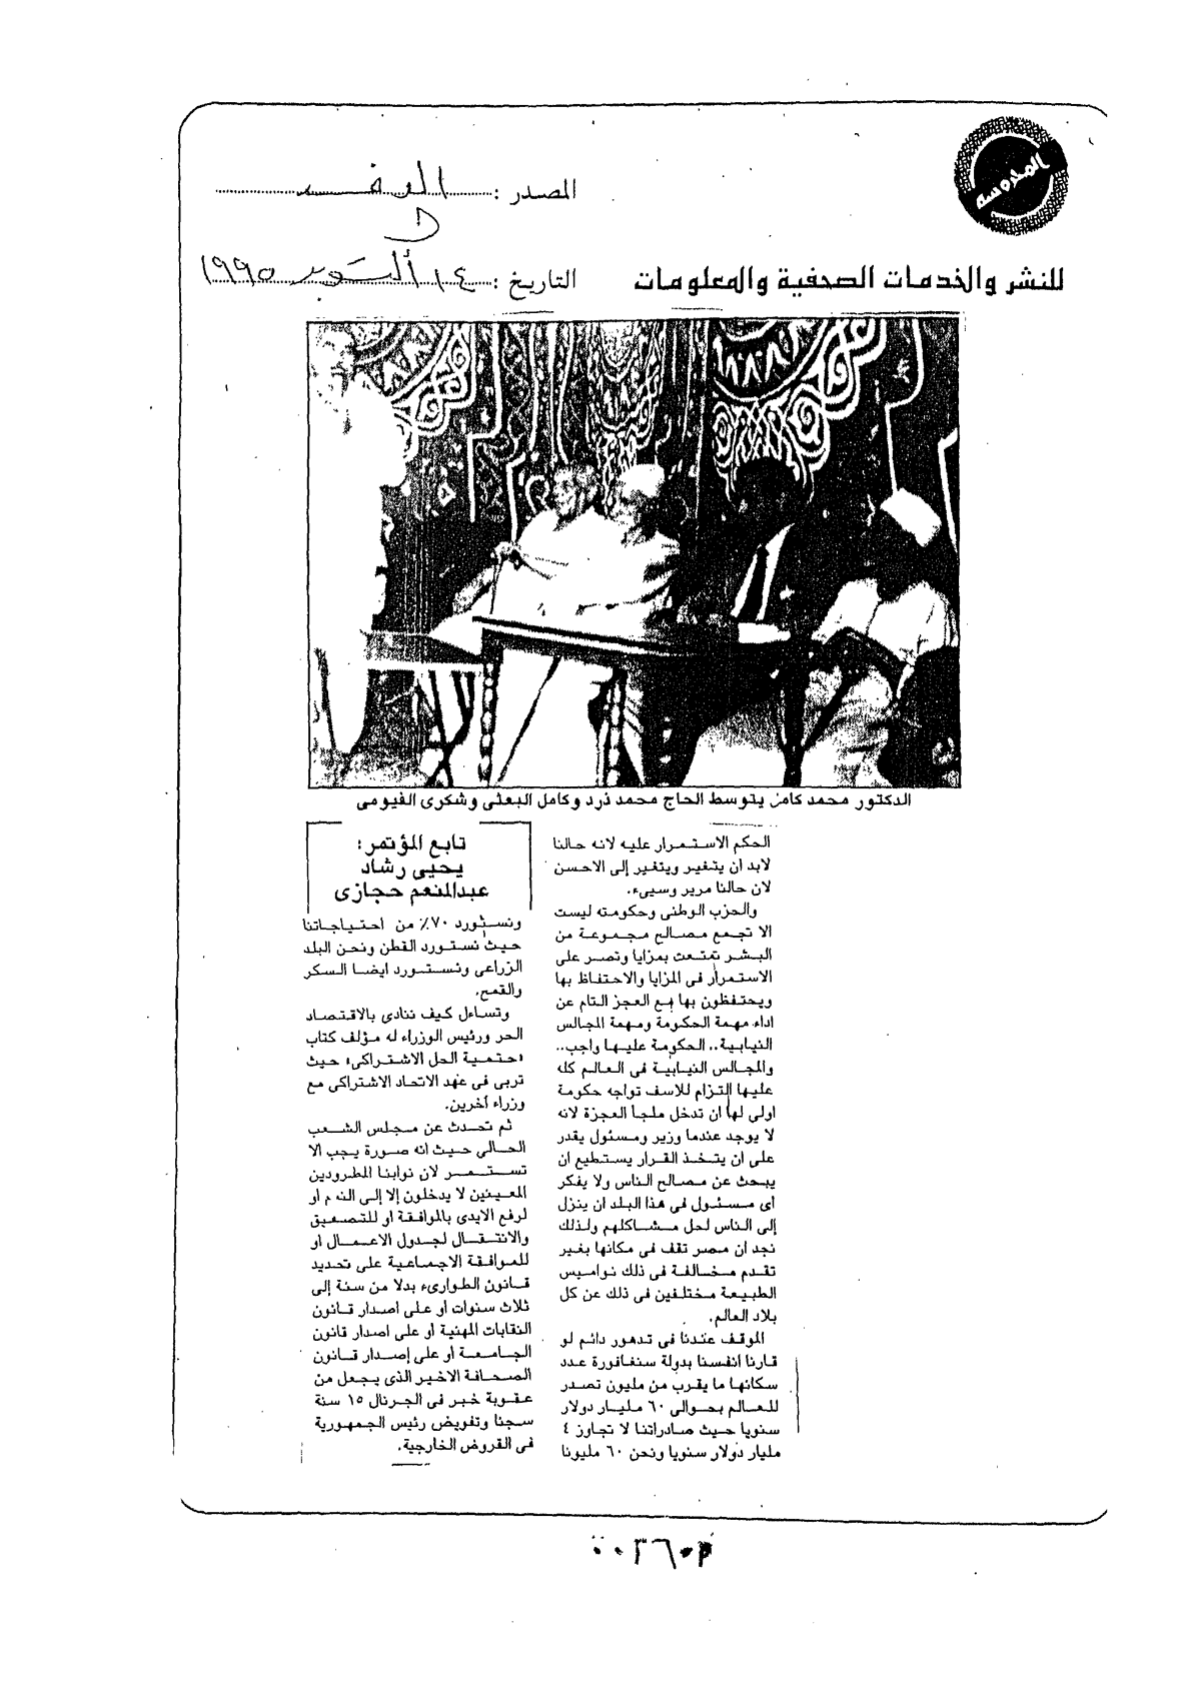 المحروسة
للنشر والخدمات الصحفية والمعلومات
المصدر : الوفد
التاريخ : ١٤ أكتوبر ١٩٩٥
الدكتور محمد كامل يتوسط الحاج محمد ذرد وكامل البعثى وشكرى الفيومى
الحكم الاستمرار عليه لانه حالنا
لابد ان يتغير ويتغير إلى الاحسن
لان حالنا مرير وسيىء.
والحزب الوطنى وحكومته ليست
الا تجمع مصالح مجموعة من
البشر تمتعت بمزايا وتصر على
الاستمرار فى المزايا والاحتفاظ بها
ويحتفظون بها مع العجز التام عن
اداء مهمة الحكومة ومهمة المجالس
النيابية.. الحكومة عليها واجب..
والمجالس النيابية فى العالم كله
عليها التزام للاسف تواجه حكومة
اولى لها ان تدخل ملجأ العجزة لانه
لا يوجد عندما وزير ومسئول يقدر
على ان يتخذ القرار يستطيع ان
يبحث عن مصالح الناس ولا يفكر
اى مسئول فى هذا البلد ان ينزل
إلى الناس لحل مشاكلهم ولذلك
نجد ان مصر تقف فى مكانها بغير
تقدم مخالفة فى ذلك نواميس
الطبيعة مختلفين فى ذلك عن كل
بلاد العالم.
الموقف عندنا فى تدهور دائم لو
قارنا انفسنا بدولة سنغافورة عدد
سكانها ما يقرب من مليون تصدر
للعالم بحوالى ٦٠ مليار دولار
سنويا حيث صادراتنا لا تجاوز ٤
مليار دولار سنويا ونحن ٦٠ مليونا
تابع المؤتمر:
يحيى رشاد
عبدالمنعم حجازى
ونستورد ٧٠٪ من احتياجاتنا
حيث نستورد القطن ونحن البلد
الزراعى ونستورد ايضا السكر
والقمح.
وتساءل كيف ننادى بالاقتصاد
الحر ورئيس الوزراء له مؤلف كتاب
«حتمية الحل الاشتراكى» حيث
تربى فى عهد الاتحاد الاشتراكى مع
وزراء أخرين.
ثم تحدث عن مجلس الشعب
الحالى حيث انه صورة يجب الا
تستمر لان نوابنا المطرودين
المعينين لا يدخلون إلا إلى النوم او
لرفع الايدى بالموافقة او للتصفيق
والانتقال لجدول الاعمال او
للموافقة الاجماعية على تحديد
قانون الطوارىء بدلا من سنة إلى
ثلاث سنوات او على اصدار قانون
النقابات المهنية او على اصدار قانون
الجامعة او على إصدار قانون
الصحافة الاخير الذى يجعل من
عقوبة خبر فى الجرنال ١٥ سنة
سجنا وتفويض رئيس الجمهورية
فى القروض الخارجية.